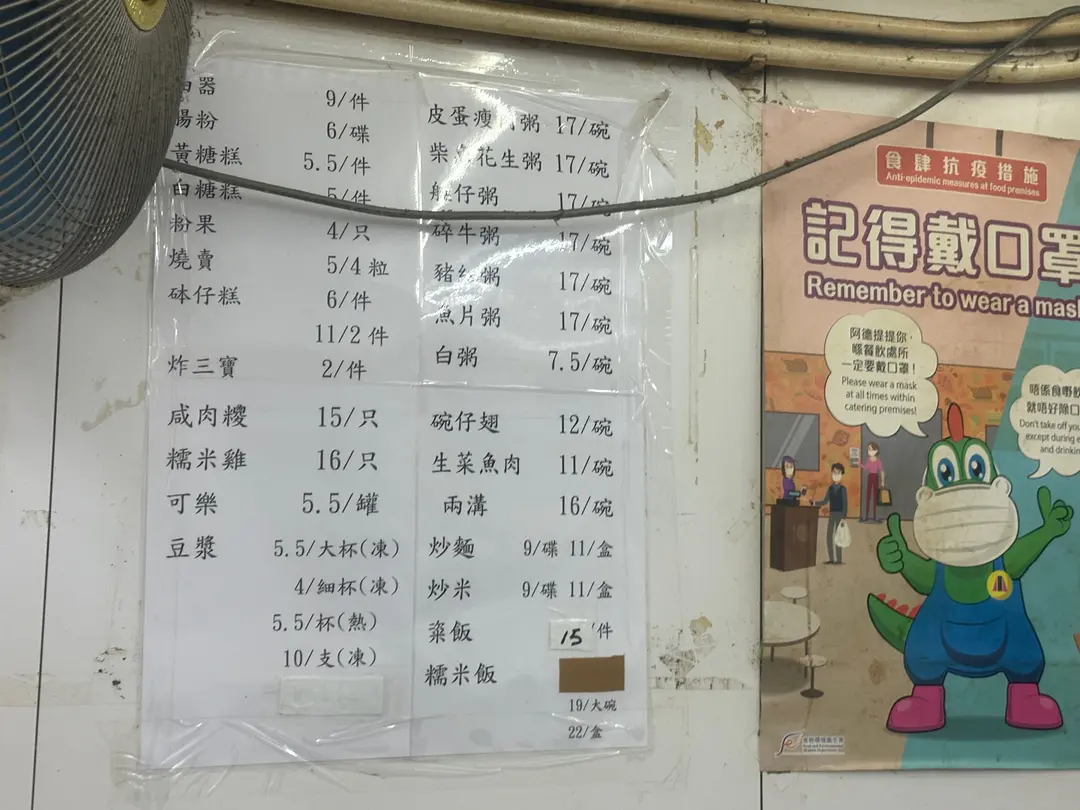 器 9/件
腸粉 6/碟
黃糖糕 5.5/件
白糖糕 5/件
粉果 4/只
燒賣 5/4 粒
砵仔糕 6/件
11/2 件
炸三寶 2/件
咸肉糭 15/只
糯米雞 16/只
可樂 5.5/罐
豆漿 5.5/大杯(凍)
4/細杯(凍)
5.5/杯(熱)
10/支(凍)
皮蛋瘦 粥 17/碗
柴 花生粥 17/碗
艇仔粥 17/碗
碎牛粥 17/碗
豬紅粥 17/碗
魚片粥 17/碗
白粥 7.5/碗
碗仔翅 12/碗
生菜魚肉 11/碗
兩溝 16/碗
炒麵 9/碟 11/盒
炒米 9/碟 11/盒
粢飯 15 /件
糯米飯
19/大碗
22/盒
食肆抗疫措施
Anti-epidemic measures at food premises
記得戴口罩
Remember to wear a mask
阿德提提你，
喺餐飲處所
一定要戴口罩！
Please wear a mask
at all times within
catering premises!
唔係食嘢飲
就唔好除口
Don't take off you
except during e
and drinkin